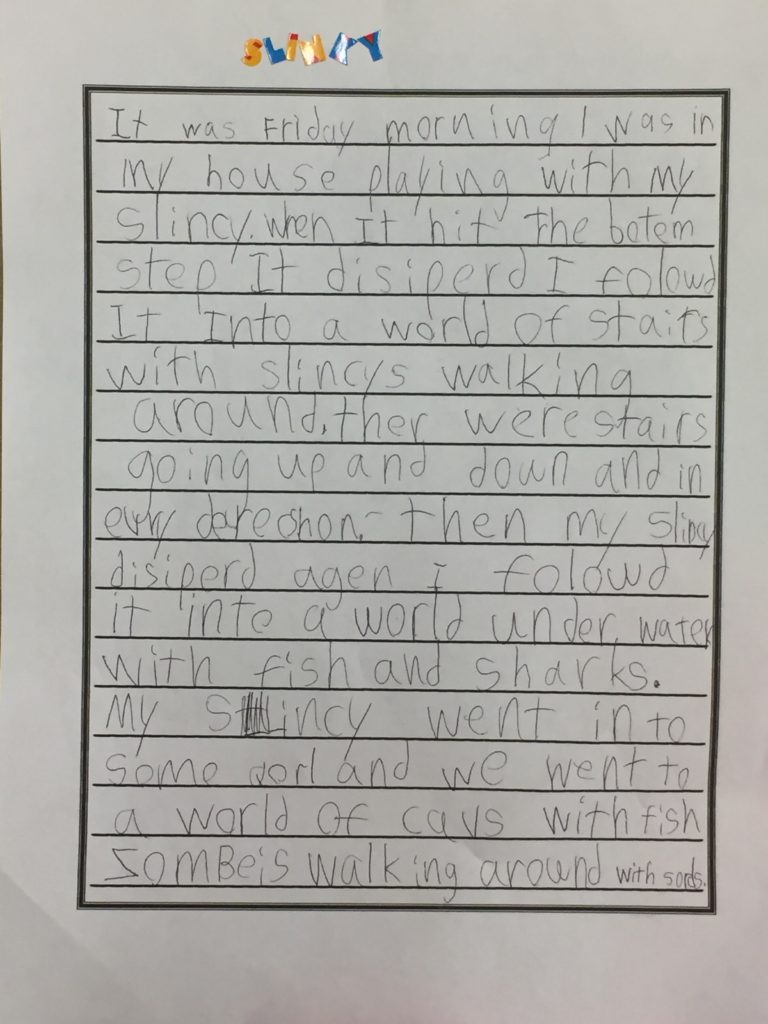 SLINCY
It was Friday morning I was in
my house playing with my
slincy. when It hit the botem
step It disiperd I folowd
It Into a world of stairs
with slincys walking
around. ther were stairs
going up and down and in
every dereshon. then my slincy
disiperd agen I folowd
it into a world under water
with fish and sharks.
My slincy went in to
some and we went to
a world of cavs with fish
zomBeis walking around with sords.